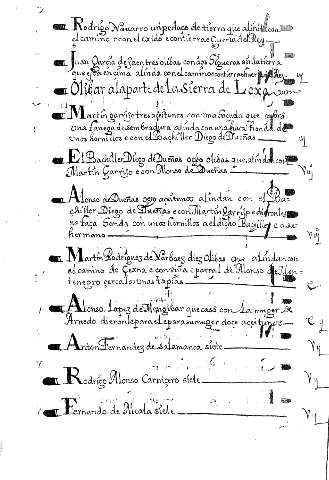 Rodrigo Navarro un pedaço de tierra que alinda con
el camino e con el exido e con tierra e Cuerta del Rey
Juan Garcia de Jaen tres olibas con dos figueras sin la tierra
que esta encima alinda con el camino e con tierra
Olibar a la parte de La Sierra de Loxa
Martin garrijo tres açeitunos con una haçuda que
una fanega de sembradura alinda con una haça honda de
unos hornillos e con el Bachiller Diego de Dueñas
El Bachiller Diego de Dueñas ocho olibas que alindan con
Martin Garrijo e con Alonso de Dueñas
Alonso de Dueñas ocho açeitunos alindan con el Ba-
chiller Diego de Dueñas e con Martin Garrijo e
haça honda con unos hornillos a el dicho Bachiller e a su
hermano
Martin Rodriguez de Narbaez diez olibas que alindan con
el camino de e con viña e parral de Alonso de
tenegro cercalo con unas tapias
Alonso Lopez de Mengibar que casó con La muger de
Arnedo dieronle para el e para su muger doce açeitunos
Anton Fernandez de Salamanca siete
Rodrigo Alonso Carnizero siete
Fernando de Alcala siete